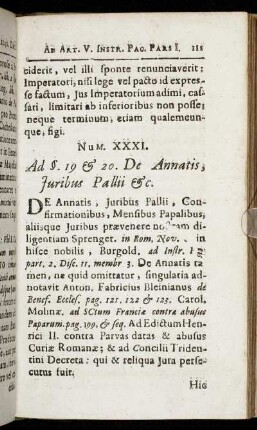 AD ART. V. INSTR. PAC. PARS I. 111
ciderit, vel illi sponte renunciaverit:
Imperatori, nisi lege vel pacto id expres-
se factum, Jus Imperatorium adimi, cas-
sari, limitari ab inferioribus non posse;
neque terminum, etiam qualemcun-
que, figi.
NUM. XXXI.
Ad §. 19 & 20. De Annatis,
Juribus Pallii &c.
DE Annatis, Juribus Pallii, Con-
firmationibus, Mensibus Papalibus,
aliisque Juribus prævenere
diligentiam Sprenger. in Rom. Nov. in
hisce nobilis, Burgold. ad Instr.
part. 2. Disc. 11. membr. 3. De Annatis ta-
men, ne quid omittatur, singularia ad-
notavit Anton. Fabricius Bleinianus de
Benef. Eccles. pag. 121. 122 & 123. Carol.
Molinæ. ad SCtum Franciæ contra abusus
Paparum. pag. 199. & seq. Ad Edictum Hen-
rici II. contra Parvas datas & abusus
Curiæ Romanæ; & ad Concilii Triden-
tini Decreta: qui & reliqua Jura perse-
cutus fuit.
Hic